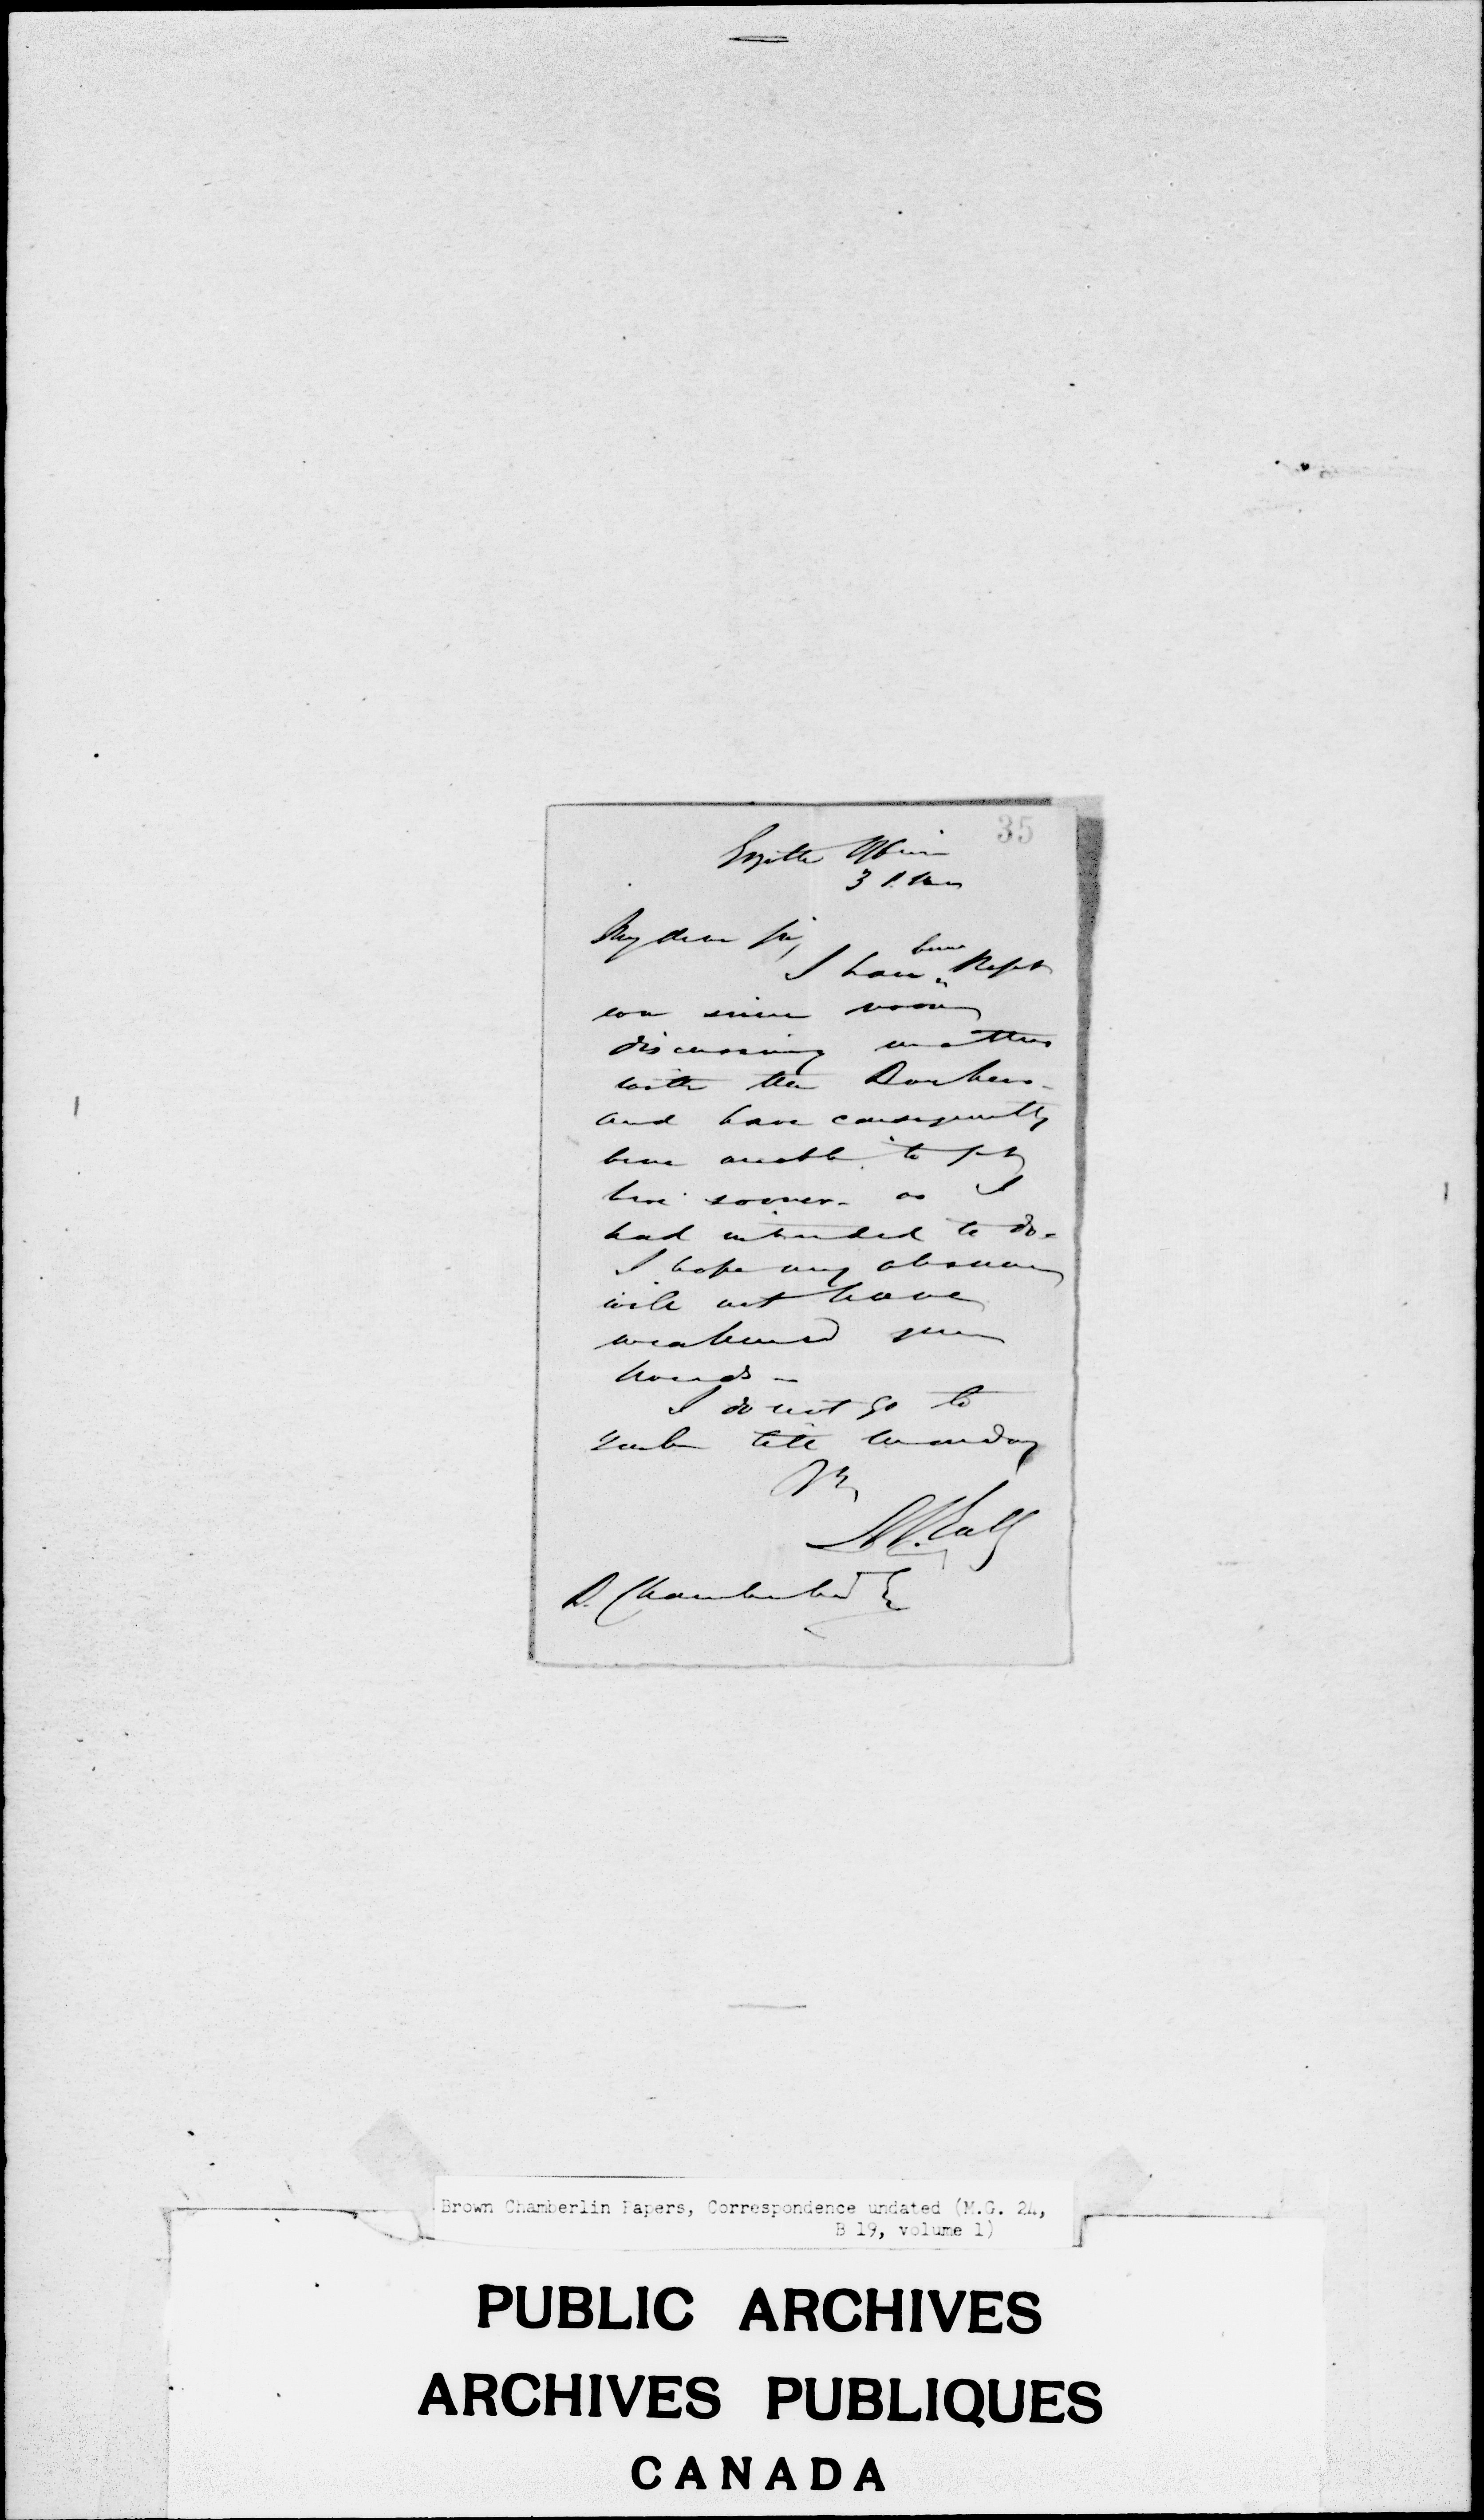 35
Gazette Office
3 P.M.
My dear Sir,
I have been kept
ever since noon
discussing matters
with the Bankers
and have consequently
been unable to get
here sooner. as I
had intended to do.
I hope my absence
will not have
weakened your
hands -
I do not go to
Quebec till Monday
A.T. Galt
B. Chamberlin Esq
Brown Chamberlin Papers, Correspondence undated (M.G. 24,
B 19, volume 1)
PUBLIC ARCHIVES
ARCHIVES PUBLIQUES
CANADA